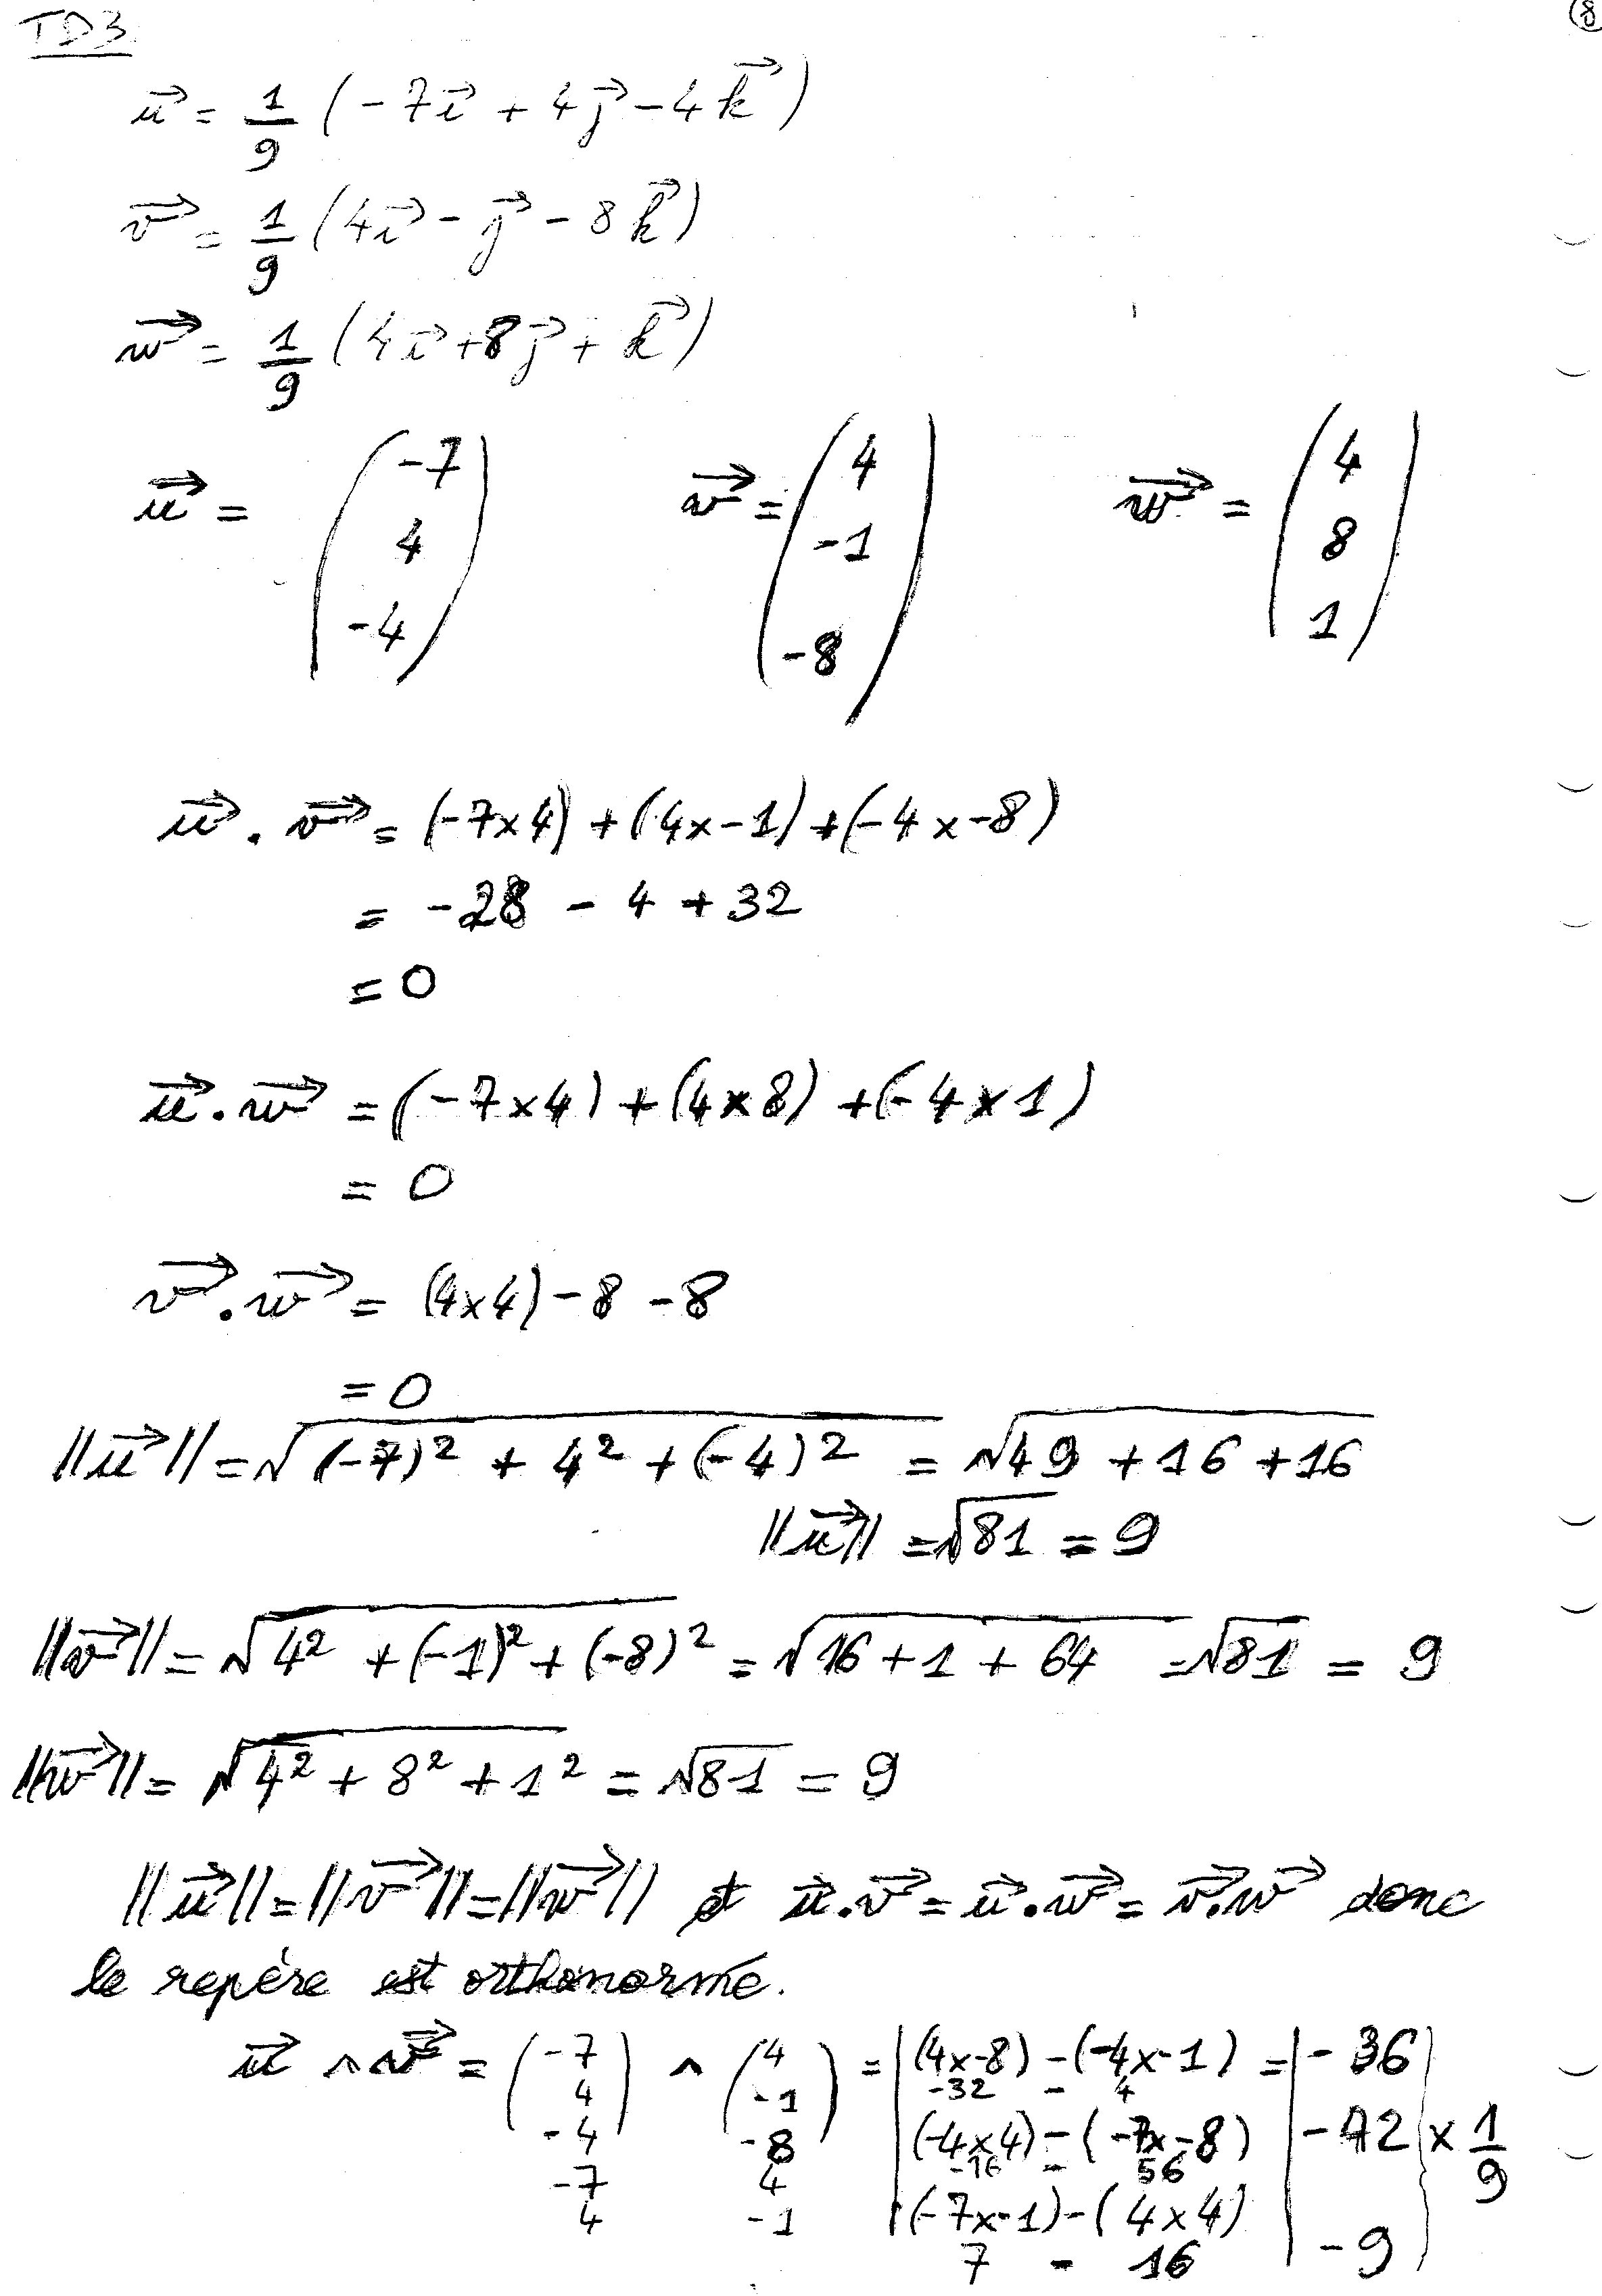 TD3 (8)
u⃗ = 1/9 (-7i⃗ + 4j⃗ - 4k⃗)
v⃗ = 1/9 (4i⃗ - j⃗ - 8k⃗)
w⃗ = 1/9 (4i⃗ + 8j⃗ + k⃗)
u⃗ = (-7 4 -4) v⃗ = (4 -1 -8) w⃗ = (4 8 1)
u⃗ . v⃗ = (-7×4) + (4×-1) + (-4×-8)
= -28 - 4 + 32
= 0
u⃗ . w⃗ = (-7×4) + (4×8) + (-4×1)
= 0
v⃗ . w⃗ = (4×4) - 8 - 8
= 0
||u⃗|| = √((-7)² + 4² + (-4)²) = √(49 + 16 + 16)
||u⃗|| = √81 = 9
||v⃗|| = √(4² + (-1)² + (-8)²) = √(16 + 1 + 64) = √81 = 9
||w⃗|| = √(4² + 8² + 1²) = √81 = 9
||u⃗|| = ||v⃗|| = ||w⃗|| et u⃗.v⃗ = u⃗.w⃗ = v⃗.w⃗ donc
le repère est orthonormé.
u⃗ ∧ v⃗ = (-7 4 -4) ∧ (4 -1 -8) = | (4×-8) - (-4×-1) = | -36
-32 - 4
(-4×4) - (-7×-8) | -72 × 1/9
-16 - 56
-7 4
(-7×-1) - (4×4) | -9
4 -1
7 - 16